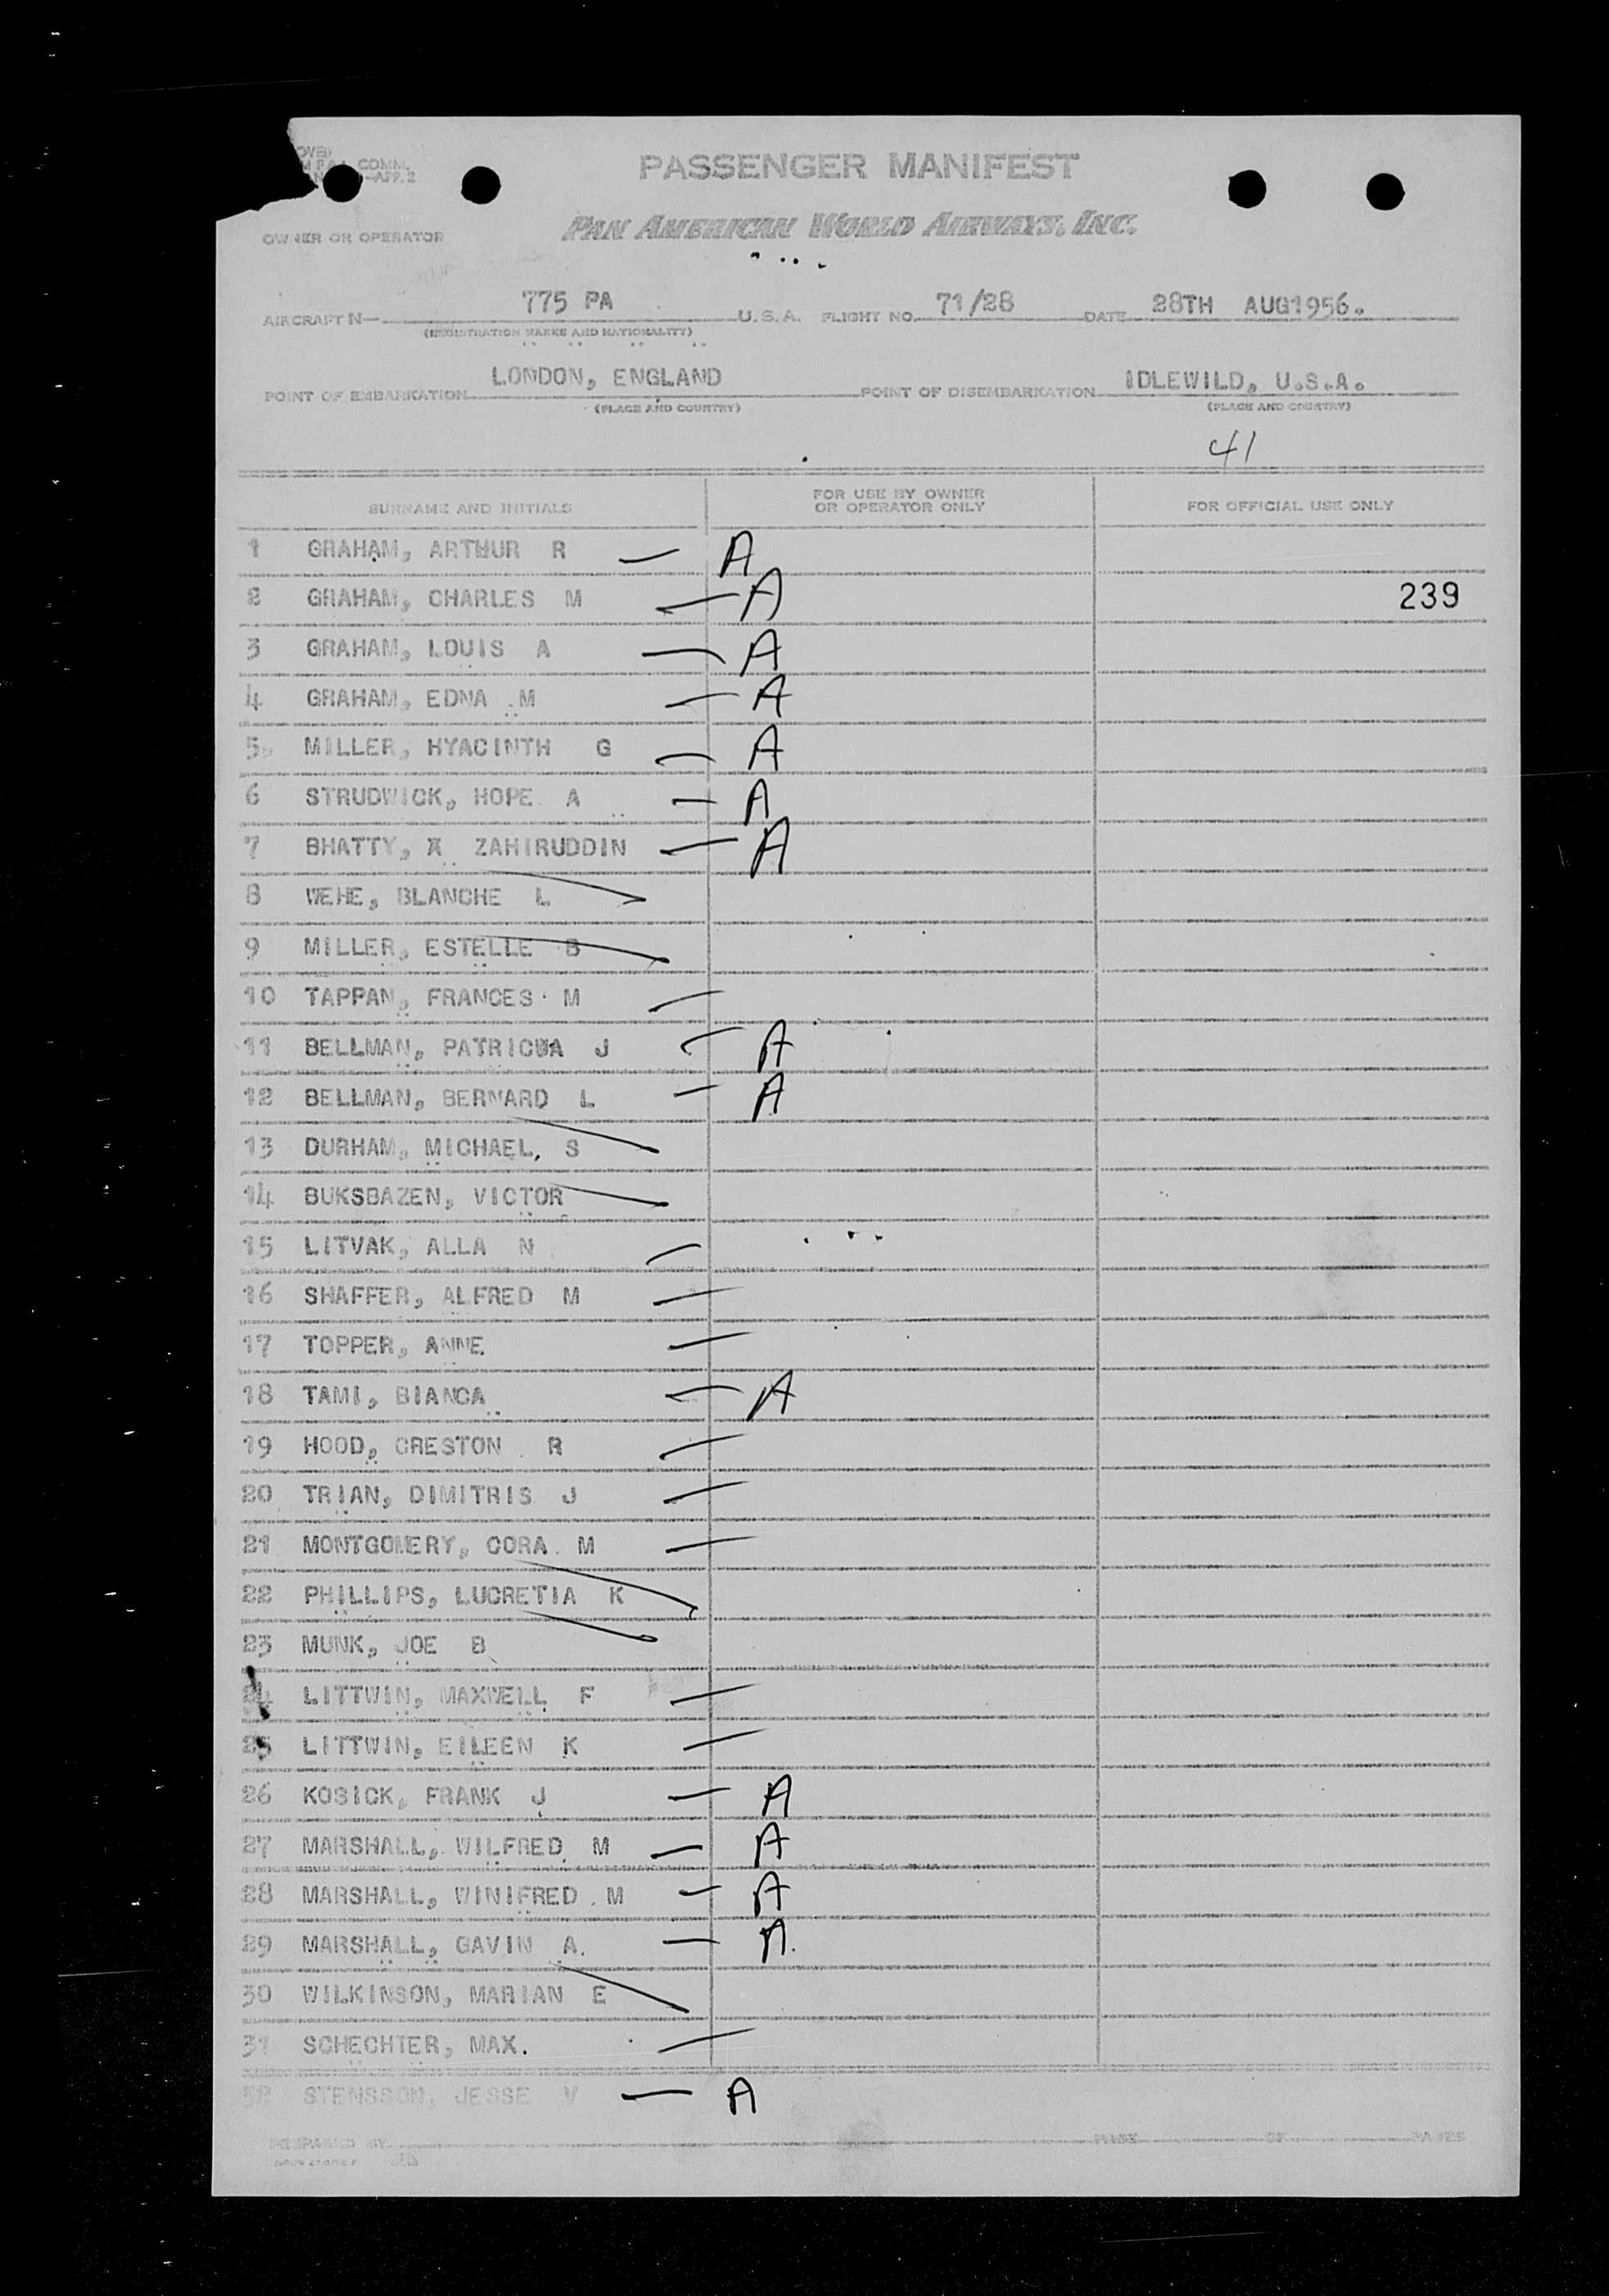 COMM.
—APP. 2
PASSENGER MANIFEST
PAN AMERICAN WORLD AIRWAYS, INC.
OWNER OR OPERATOR
AIRCRAFT N— 775 PA U.S.A. FLIGHT NO. 71/28 DATE 28TH AUG1956.
(REGISTRATION MARKS AND NATIONALITY)
POINT OF EMBARKATION LONDON, ENGLAND POINT OF DISEMBARKATION IDLEWILD, U.S.A.
(PLACE AND COUNTRY) (PLACE AND COUNTRY)
41
SURNAME AND INITIALS FOR USE BY OWNER OR OPERATOR ONLY FOR OFFICIAL USE ONLY
1 GRAHAM, ARTHUR R — A
2 GRAHAM, CHARLES M — A 239
3 GRAHAM, LOUIS A — A
4 GRAHAM, EDNA M — A
5 MILLER, HYACINTH G — A
6 STRUDWICK, HOPE A — A
7 BHATTY, ZAHIRUDDIN — A
8 WEHE, BLANCHE L
9 MILLER, ESTELLE B
10 TAPPAN, FRANCES M
11 BELLMAN, J — A
12 BELLMAN, BERNARD L — A
13 DURHAM, MICHAEL, S
14 BUKSBAZEN, VICTOR
15 LITVAK, ALLA N
16 SHAFFER, ALFRED M
17 TOPPER, ANNE
18 TAMI, BIANCA — A
19 HOOD, CRESTON R
20 TRIAN, DIMITRIS J
21 MONTGOMERY, CORA M
22 PHILLIPS, LUCRETIA K
23 MUNK, JOE B
24 LITTWIN, MAXWELL F
25 LITTWIN, EILEEN K
26 KOSICK, FRANK J — A
27 MARSHALL, WILFRED M — A
28 MARSHALL, WINIFRED M — A
29 MARSHALL, GAVIN A. — A.
30 WILKINSON, MARIAN E
31 SCHECHTER, MAX.
32 STENSSON, JESSE V — A
PREPARED BY PAGE OF PAGES